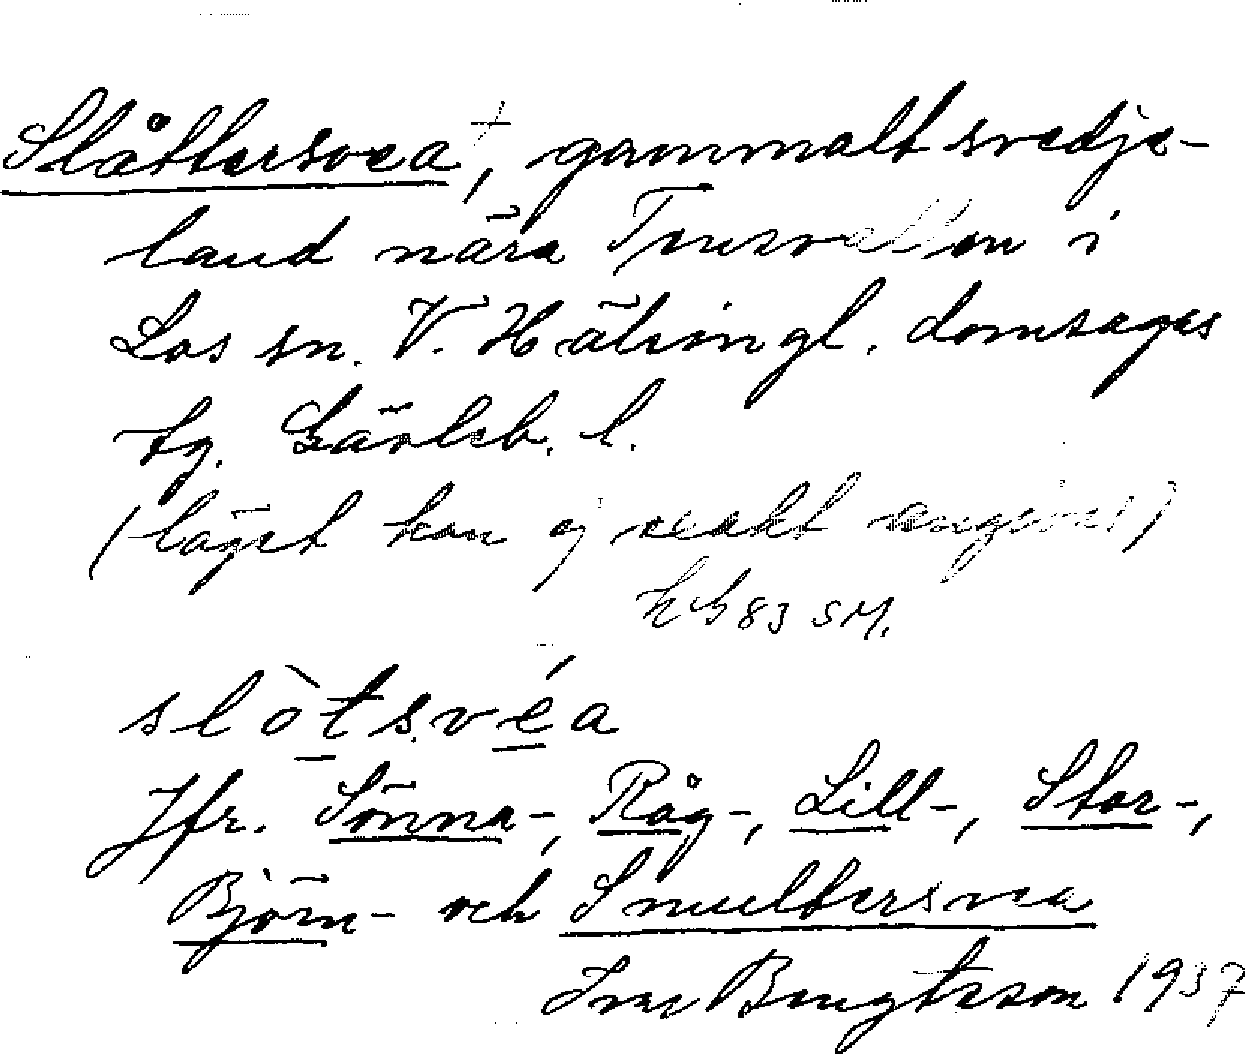 Slåttersvea +, gammalt svedje-
land nära Tensvallen i
Los sn. V. Hälsingl. domsagas
tg. Gävleb. l.
(läget kan ej exakt angivas)
hb 83 SM.
slòtsvéa
Jfr. Sönna-, Råg-, Lill-, Stor-,
Björn- och Smultersvea
Ivar Bengtsson 1937